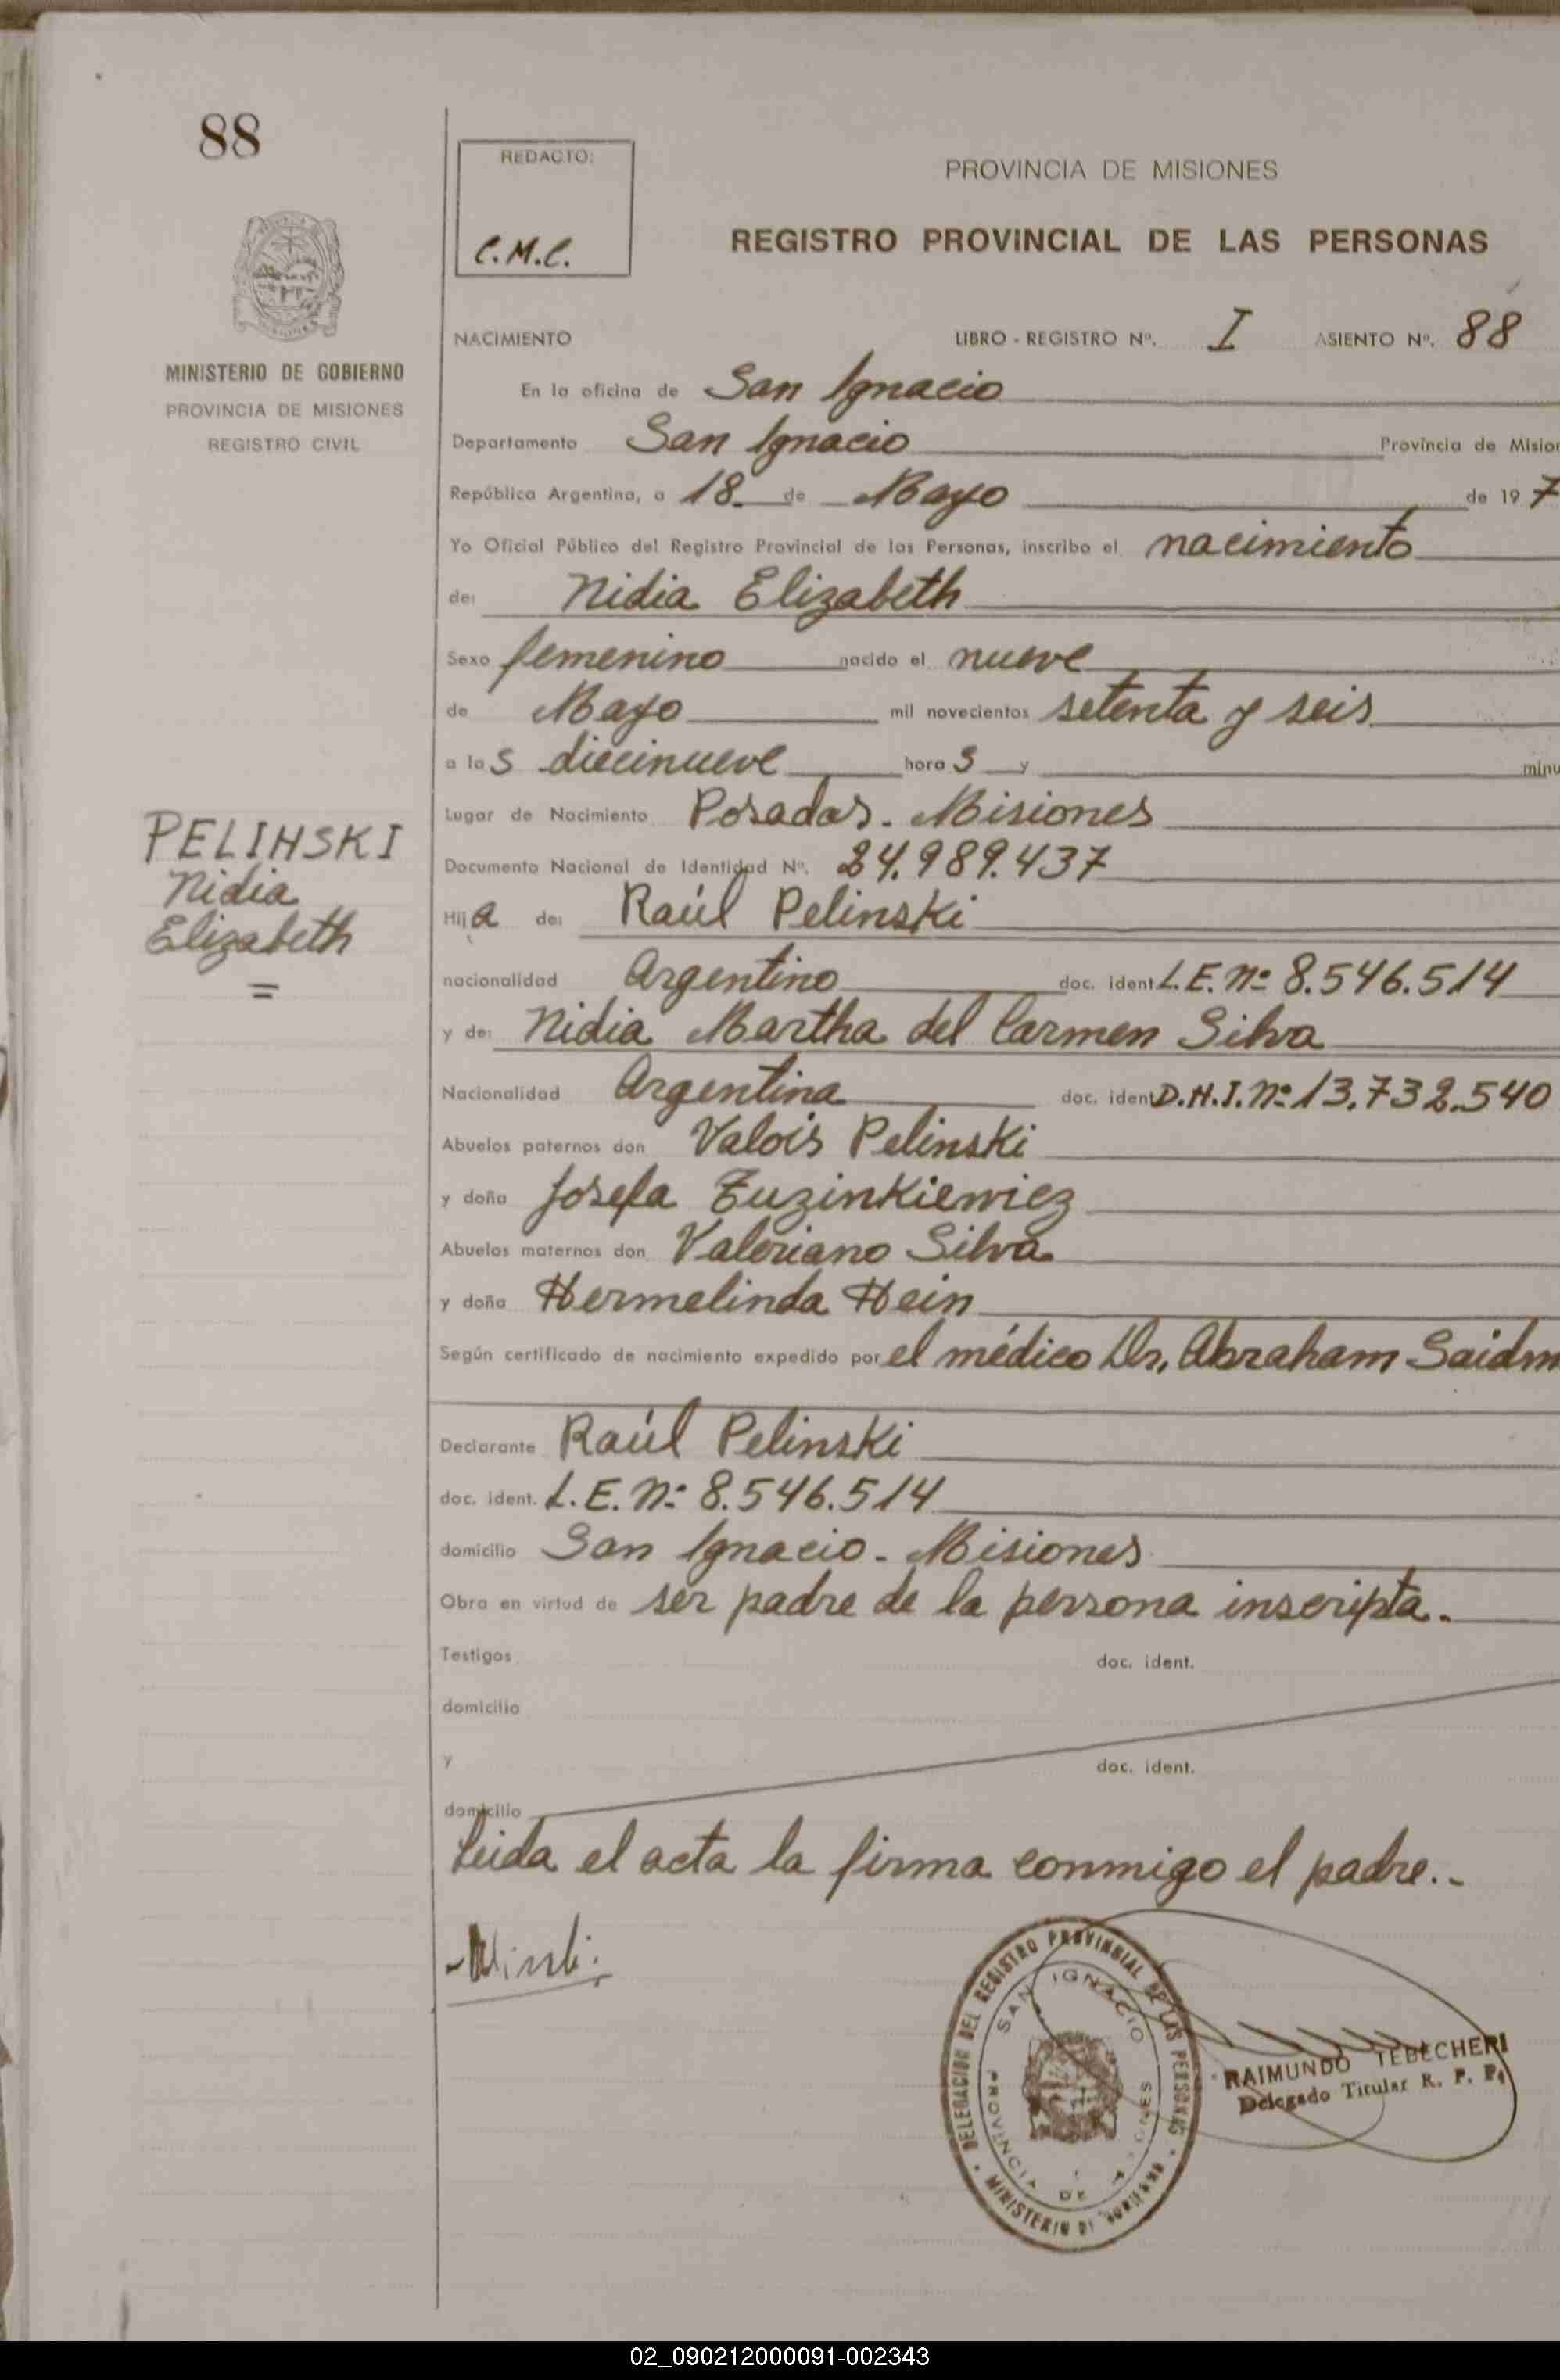 88
REDACTO:
C.M.C.
PROVINCIA DE MISIONES
REGISTRO PROVINCIAL DE LAS PERSONAS
MINISTERIO DE GOBIERNO
PROVINCIA DE MISIONES
REGISTRO CIVIL
NACIMIENTO LIBRO - REGISTRO Nº. I ASIENTO Nº. 88
En la oficina de San Ignacio
Departamento San Ignacio Provincia de Mision
República Argentina, a 18 de Mayo de 197
Yo Oficial Público del Registro Provincial de las Personas, inscribo el nacimiento
de: Nidia Elizabeth
Sexo femenino nacido el nueve
de Mayo mil novecientos setenta y seis
a las diecinueve horas y minu
Lugar de Nacimiento Posadas - Misiones
Documento Nacional de Identidad Nº. 24.989.437
PELINSKI
Nidia
Elizabeth
=
Hija de: Raúl Pelinski
nacionalidad Argentino doc. ident. L.E. Nº 8.546.514
y de: Nidia Martha del Carmen Silva
Nacionalidad Argentina doc. ident. D.N.I. Nº 13.732.540
Abuelos paternos don Valois Pelinski
y doña Josefa Zuzinkiewicz
Abuelos maternos don Valeriano Silva
y doña Hermelinda Hein
Según certificado de nacimiento expedido por el médico Dr. Abraham Saidm
Declarante Raúl Pelinski
doc. ident. L.E. Nº 8.546.514
domicilio San Ignacio - Misiones
Obra en virtud de ser padre de la persona inscripta.
Testigos doc. ident.
domicilio
y doc. ident.
domicilio
Leida el acta la firma conmigo el padre..-
DELEGACION DEL REGISTRO PROVINCIAL DE LAS PERSONAS
SAN IGNACIO
PROVINCIA DE MISIONES
MINISTERIO DE GOBIERNO
RAIMUNDO TEBECHERI
Delegado Titular R. P. P.
02_090212000091-002343